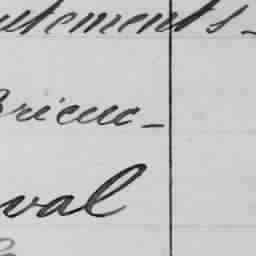 utements
Brieuc
val